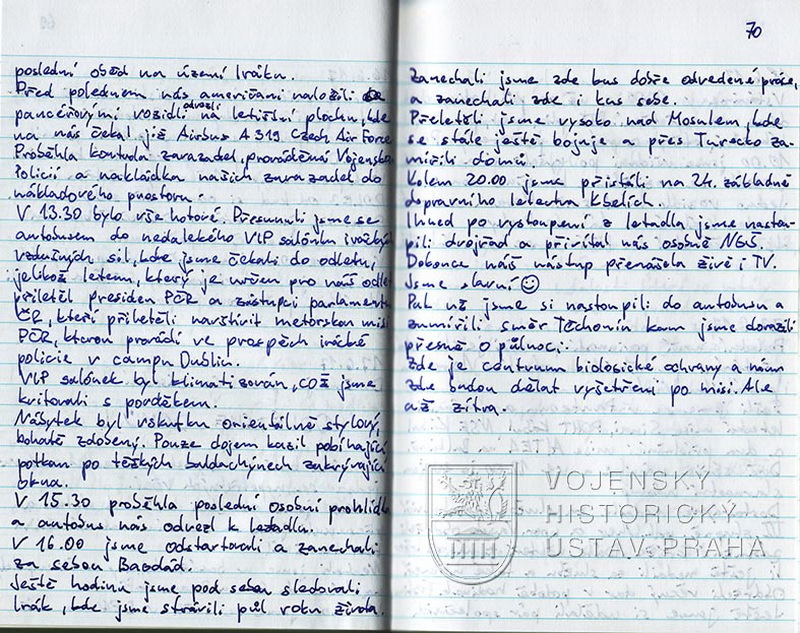 poslední oběd na území Iráku.
Před polednem nás američani naložili a
pancéřovými vozidli odvezli na letištní plochu, kde
na nás čekal již Airbus A 319 Czech Air Force
Proběhla kontrola zavazadel, prováděná Vojensko
Policií a nakládka našich zavazadel do
nákladového prostoru.
V 13.30 bylo vše hotové. Přesunuli jsme se
autobusem do nedalekého VIP salónku iváckých
vzdušných sil, kde jsme čekali do odletu,
jelikož letem, který je určen pro náš odlet
přiletěl president PČR a zástupci parlamentu
ČR, kteří přiletěli navštívit metorskou misi
PČR, kterou provádí ve prospěch irácké
policie v campu Dublin.
VIP salónek byl klimatizován, což jsme
kvitovali s povděkem.
Nábytek byl vskutku orientálně stylový,
bohatě zdobený. Pouze dojem kazil pobíhající
potkan po těžkých baldachýnech zakrývající
okna.
V 15.30 proběhla poslední osobní prohlídka
a autobus nás odvezl k letadlu.
V 16.00 jsme odstartovali a zanechali
za sebou Bagdád.
Ještě hodinu jsme pod sebou sledovali
Irák, kde jsme strávili půl roku života.
70
Zanechali jsme zde kus dobře odvedené práce,
a zanechali zde i kus sebe.
Přeletěli jsme vysoko nad Mosulem, kde
se stále ještě bojuje a přes Turecko za-
mířili domů.
Kolem 20.00 jsme přistáli na 24. základně
dopravního letectva Kbelích.
Ihned po vystoupení z letadla jsme nastou-
pili dvojřad a přivítal nás osobně NGŠ.
Dokonce náš nástup přenášela živě i TV.
Jsme slavní ☺
Pak už jsme si nastoupili do autobusu a
zamířili směr Těchonín kam jsme dorazili
přesně o půlnoci.
Zde je centrum biologické ochrany a nám
zde budou dělat vyšetření po misi. Ale
až zítra.
VOJENSKÝ
HISTORICKÝ
ÚSTAV PRAHA